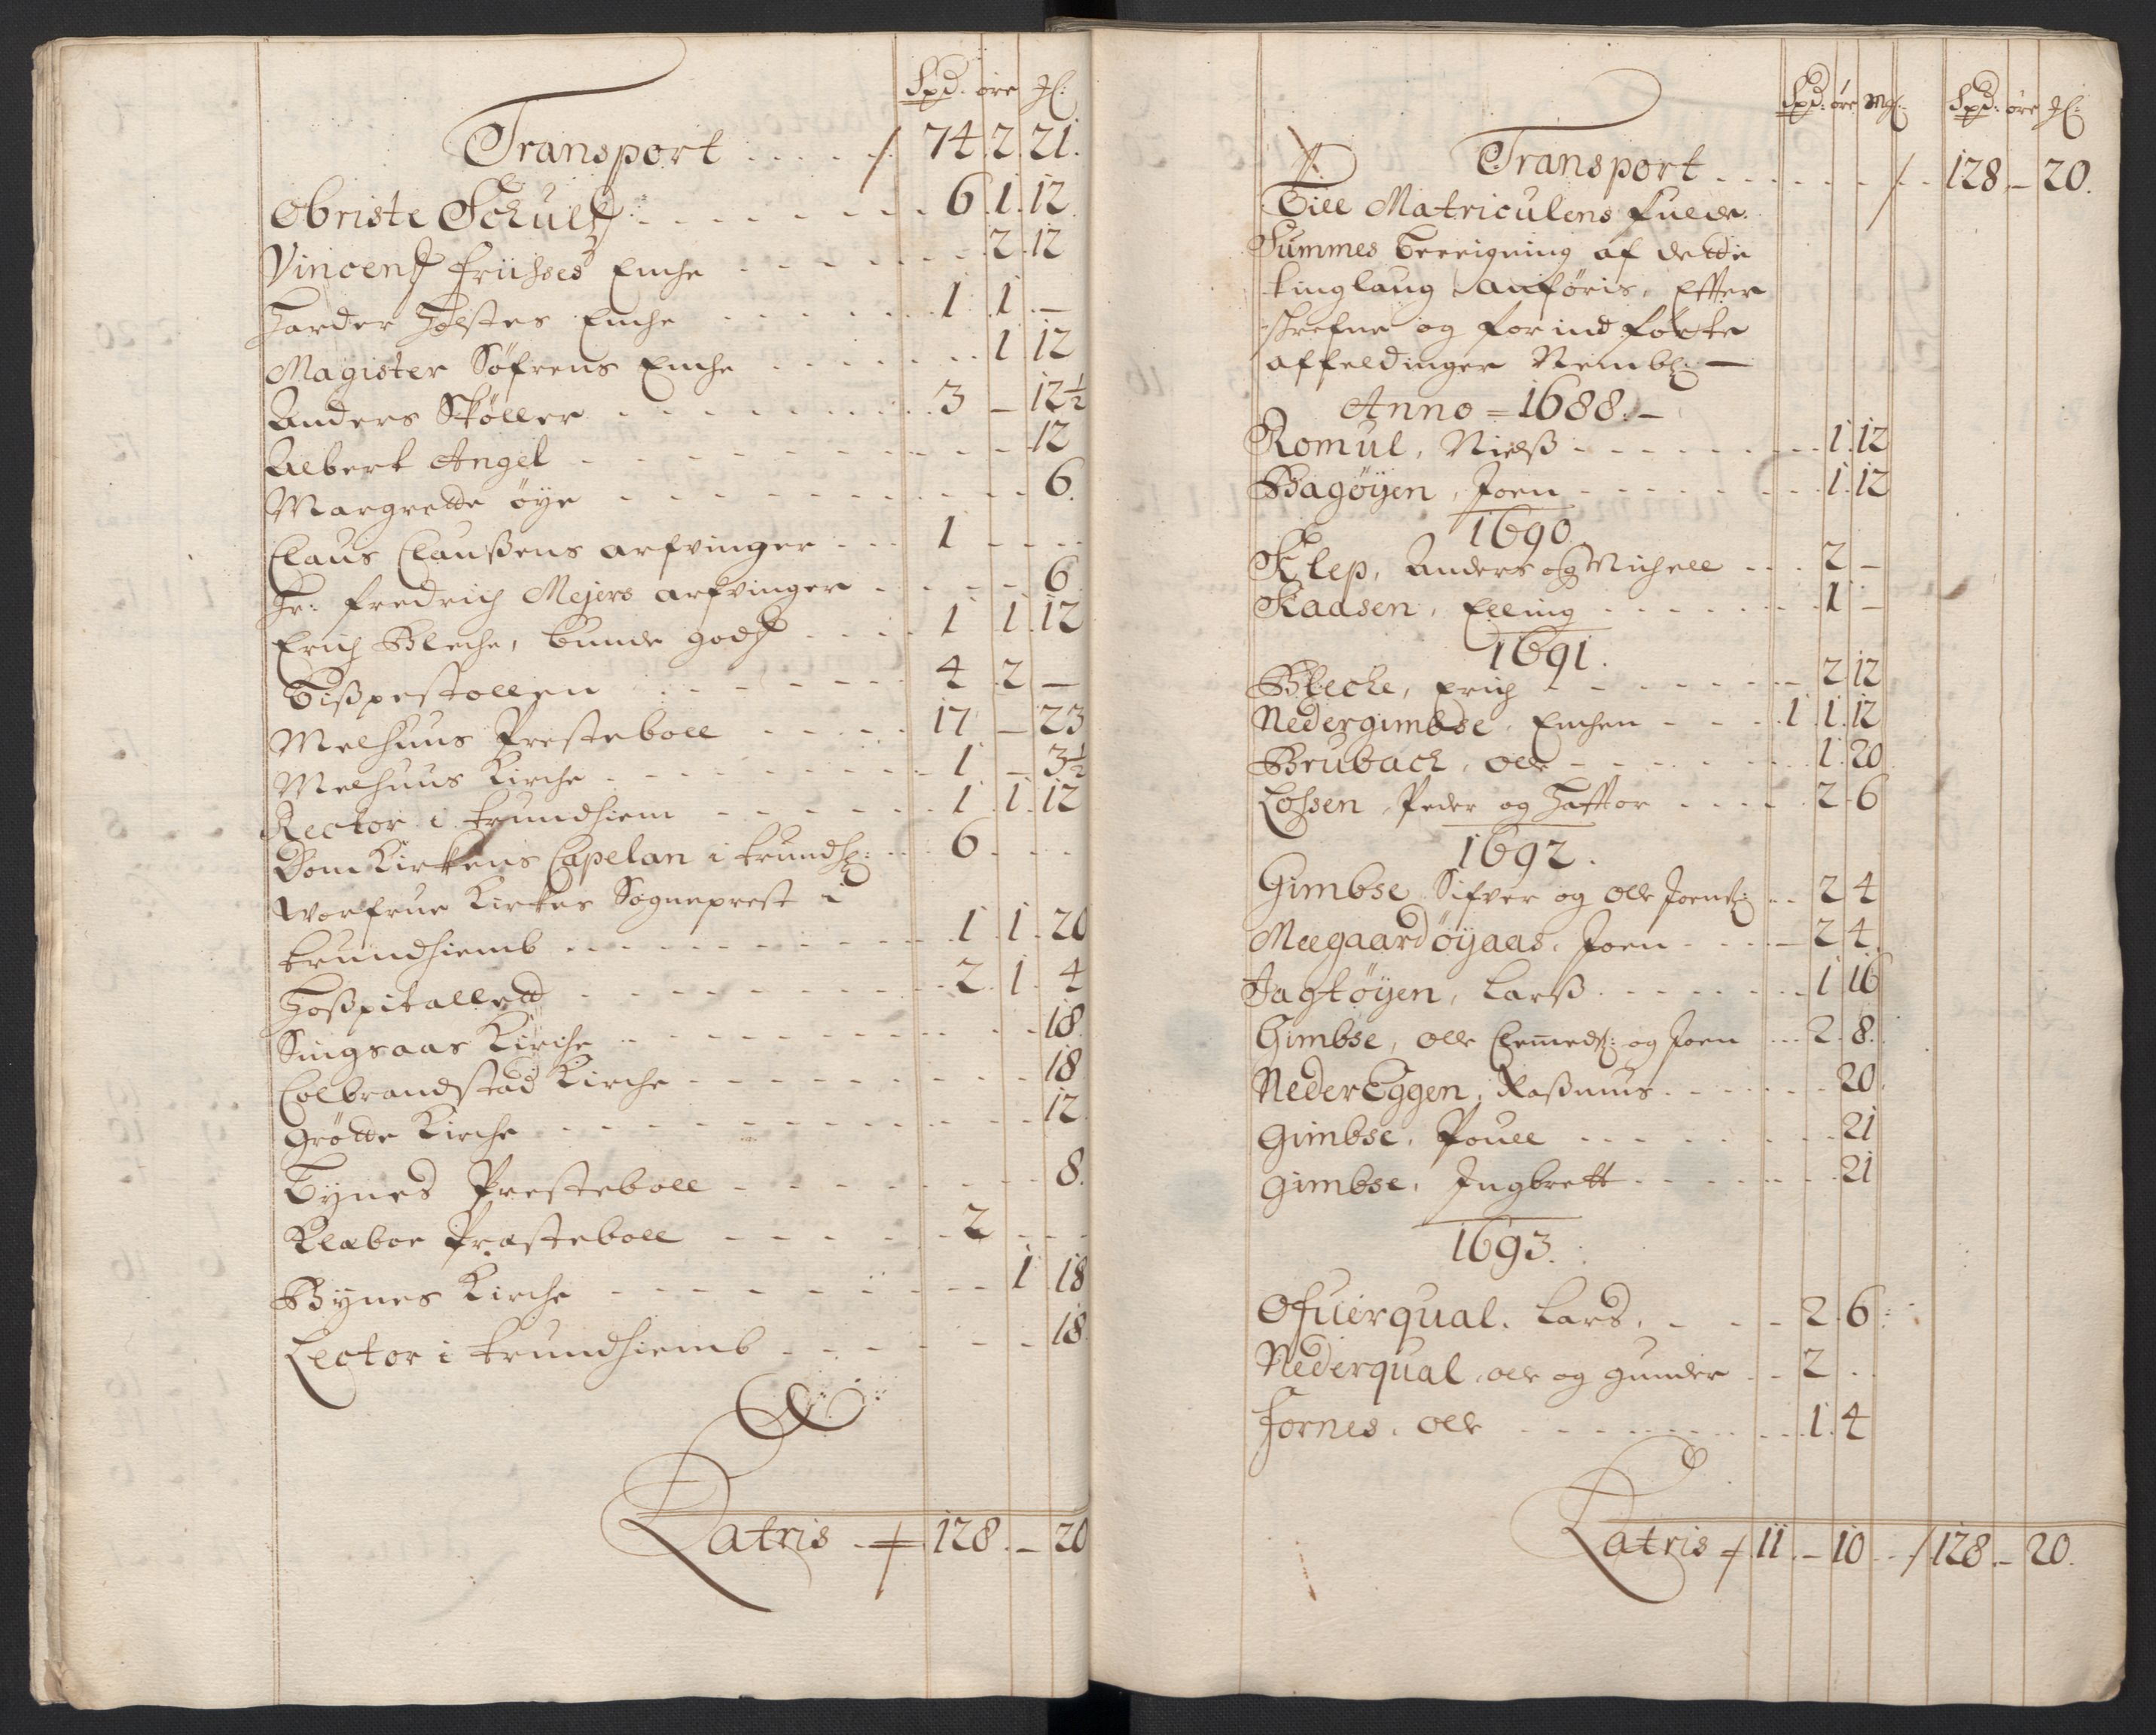 Spd. øre Ml:
Transport ..... / 74. 2. 21.
Obriste Schultz: - - - 6. 1. 12.
Vincentz Friisses Enche - - - 2. 12
Harder Holstes Enche - - - 1. 1. —
Magister Søfrens Enche - - - 1. 12
Anders Skøller - - - 3 — 12½
Albert Angel - - - 12
Margrette øye - - - 6.
Claus Claußens arfvinger - - - 1 - - -
Hr: Fredrich Mejers arfvinger - - - 6
Erich Bleche, bunde godtz - - - 1. 1. 12
Tißpestollen - - - 4. 2 —
Melhuus Presteboll - - - 17 — 23
Melhuus Kirche - - - 1 — 3½
Rector i trundhiem - - - 1. 1. 12
Dom Kirkens Capelan i trundh: - - 6 - - -
Worfrue Kirkes Sogneprest i
trundhiemb - - - 1. 1. 20
Hoßpitallett - - - 2. 1. 4
Singsaas Kirche - - - 18.
Colbrandstad Kirche - - - 18
Grøtte Kirche - - - 12.
Bynes Presteboll - - - 8.
Klæboe Præsteboll - - - 2 - - -
Bynes Kirche - - - 1 18
Lector i trundhiemb - - - 18.
Latris - / 128. — 20
Spd: øre Ml: Spd: øre Ml:
Transport - - - / - - 128 — 20.
Till Matriculens fulde
Summes bereigning af dette
tinglaug anføris, Efter
skrefne og forindførte
affeldinger Nembl: —
Anno = 1688. —
Romul, Nielß - - - 1. 12
Bagøyen, Joen - - - 1. 12
1690
Klep, Anders og Michell - - - 2 —
Kaasen, Elling - - - 1 —
1691.
Blecke, Erich - - - 2 12
Nedergimbse, Enchen - - - 1. 1. 12
Brubach, Olle - - - 1. 20
Loßen, Peder og Haftor - - - 2. 6
1692.
Gimbse Sifver og Olle Joens: - - 2 4
Meegaardøyaas, Joen - - - 2 4.
Jagtøyen, Larß - - - 1 16
Gimbse, Olle Clemeds: og Joen - - 2. 8.
NederEggen, Raßmus - - - 20.
Gimbse, Pouell - - - 21
Gimbse, Ingbrett - - - 21
1693.
Ofuerqual. Lars. - - - 2. 6.
Nederqual, Olle og Gunder - - 2 .
Fornes. Olle - - - 1. 4
Latris / 11 — 10 - - / 128. — 20.